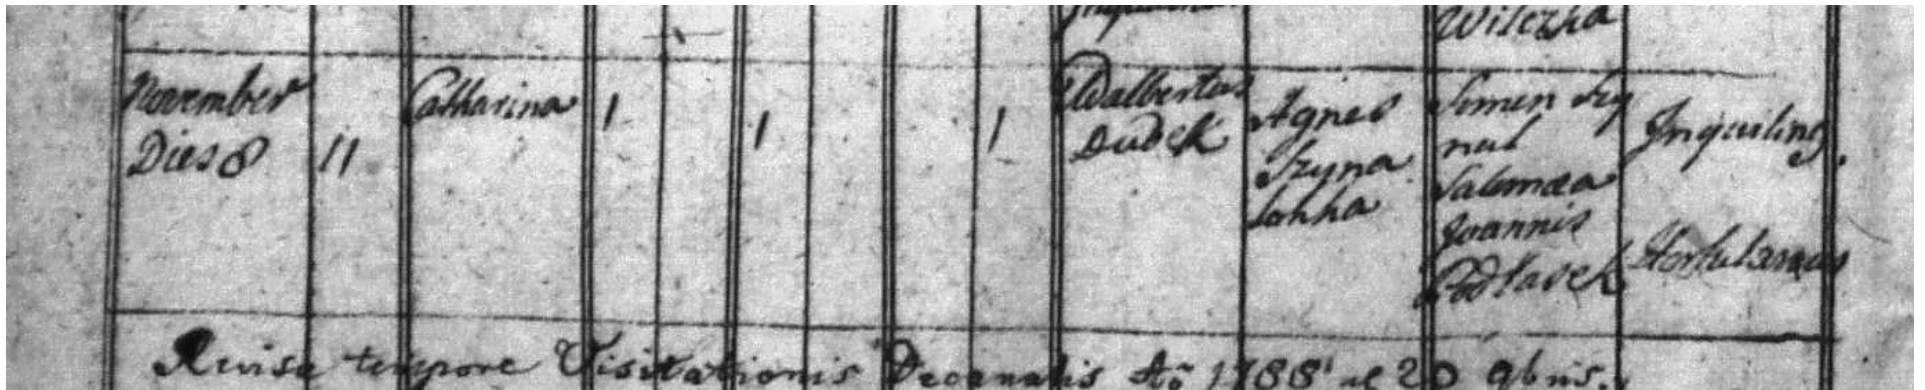 Wilczka
November
Dies 8
11
Catharina
1
1
1
Adalbertus
Dudek
Agnes
Szyna
lonka
Simen Szy
nal
Salomæa
Joannis
Podsadek
Inquilinq.
Hortulanus
Revisa tempore Visitationis Decanalis Aō 1788 20 9bris.